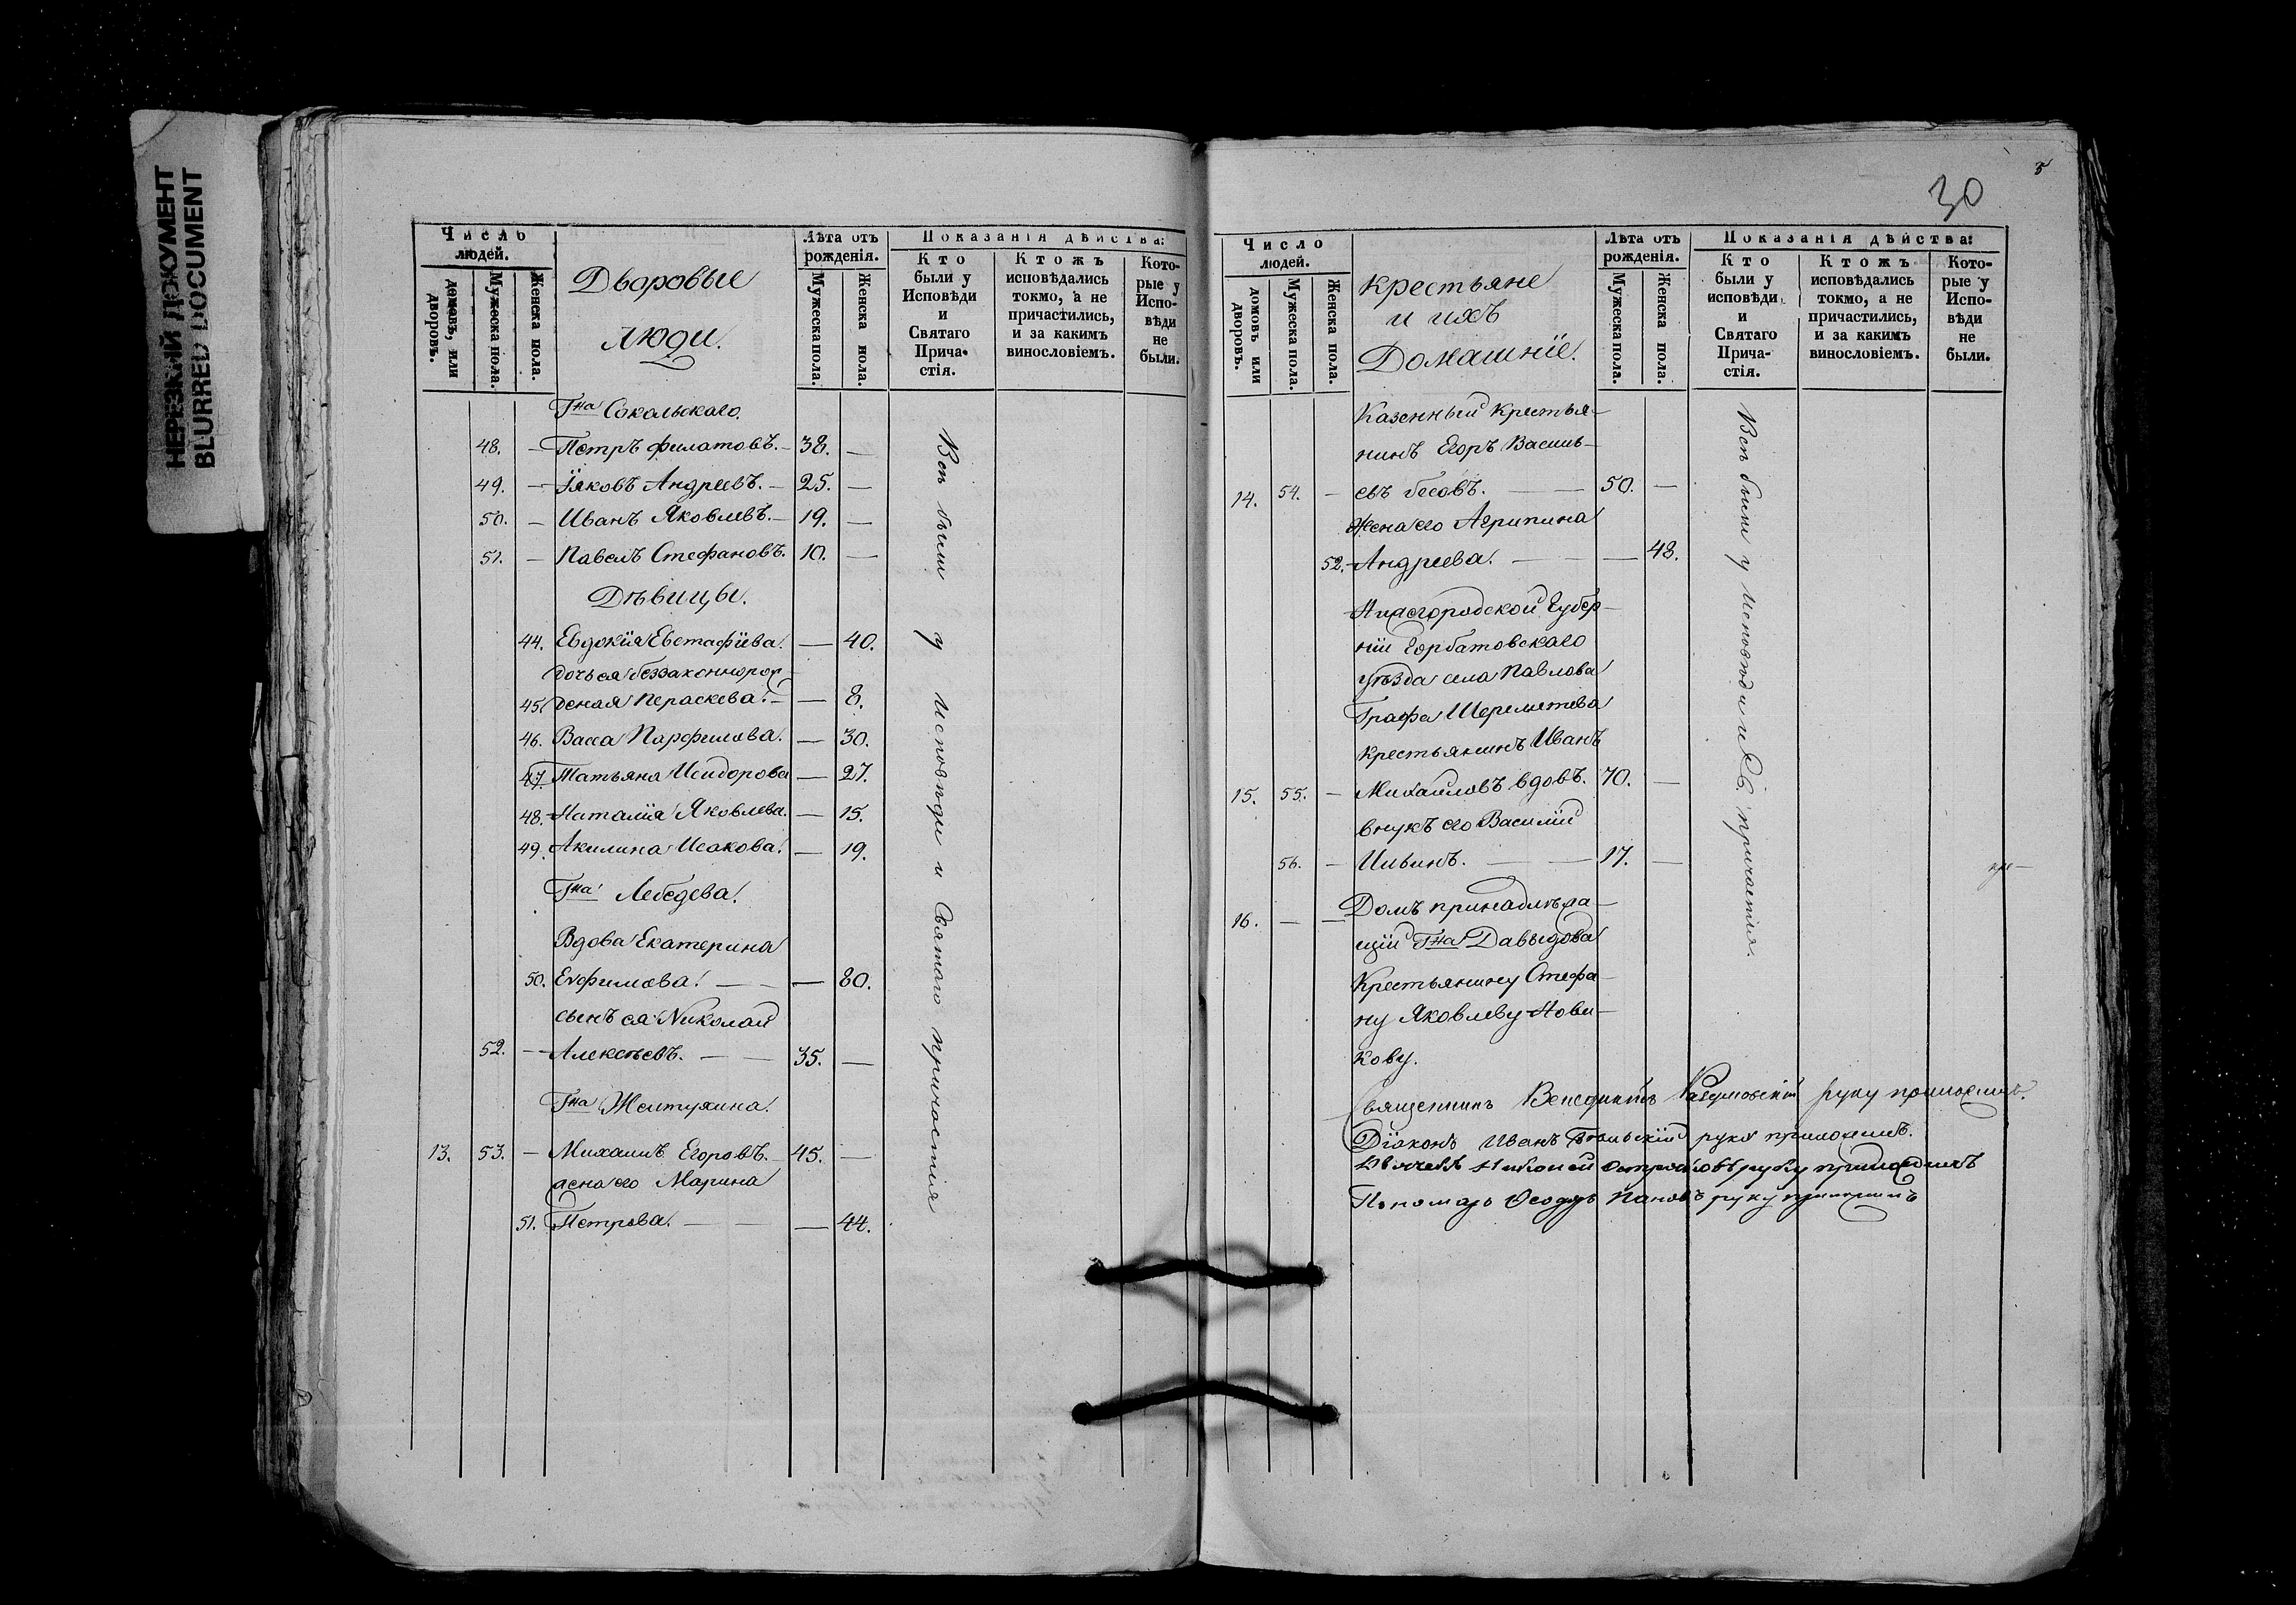 НЕРЕЗКИЙ ДОКУМЕНТ
BLURRED DOCUMENT
Число
людей.
домовъ, или дворовъ.
Мужеска пола.
Женска пола.
Дворовые
люди.
Лѣта отъ
рожденія.
Мужеска пола.
Женска пола.
Показанія дѣйства:
Кто
были у
Исповѣди
и
Святаго
Прича-
стія.
Ктожъ
исповѣдались
токмо, а не
причастились,
и за какимъ
винословіемъ.
Кото-
рые у
Испо-
вѣди
не
были.
Гна Сокольскаго.
48. — Петръ Филатовъ. — 38. —
49. — Іяковъ Андреевъ. — 25. —
50. — Иванъ Яковлевъ. — 19. —
51. — Павелъ Стефановъ. 10. —
Дѣвицы.
44. Евдокія Евстафіева. — 40.
дочь ея беззаконнорож-
45. деная Параскева. — — 8.
46. Васса Парфилова. — 30.
47. Татьяна Исидорова — 27.
48. Наталія Яковлева. — 15.
49. Акилина Исакова. — 19.
Гна Лебедева.
Вдова Екатерина
50. Евфимова. — — — 80.
сынъ ея Николай
52. — Алексѣевъ. — — 35. —
Гна Желтухина.
13. 53. — Михаилъ Егоровъ. — 45. —
жена его Марина
51. Петрова. — — — 44.
Всѣ были у исповѣди и святаго причастія
30
5
Число
людей.
домовъ или дворовъ.
Мужеска пола.
Женска пола.
Крестьяне
и ихъ
Домашніе.
Лѣта отъ
рожденія.
Мужеска пола.
Женска пола.
Показанія дѣйства:
Кто
были у
исповѣди
и
Святаго
Прича-
стія.
Ктожъ
исповѣдались
токмо, а не
причастились,
и за какимъ
винословіемъ.
Кото-
рые у
Испо-
вѣди
не
были.
Казенный крестья-
нинъ Егоръ Василь-
14. 54. — евъ бесовъ. — — 50. —
жена его Агрипина
52. Андреева. — — — 48.
Нижегородской Губер-
ніи Горбатовскаго
уѣзда села Павлова
Графа Шереметева
крестьянинъ Иванъ
15. 55. — Михаиловъ вдовъ. 70. —
внукъ его Василій
56. — Ивинъ. — — 17. —
16. — — Домъ принадлѣжа-
щій Гна Давыдова
Крестьянину Стефа-
ну Яковлеву Нови-
кову.
Всѣ были у исповѣди и св. причастія.
Священникъ Венедиктъ руку приложилъ.
Діаконъ Иванъ руку приложилъ.
Николай Остроумовъ руку приложилъ
Пономарь Ѳеодоръ Пановъ руку приложилъ